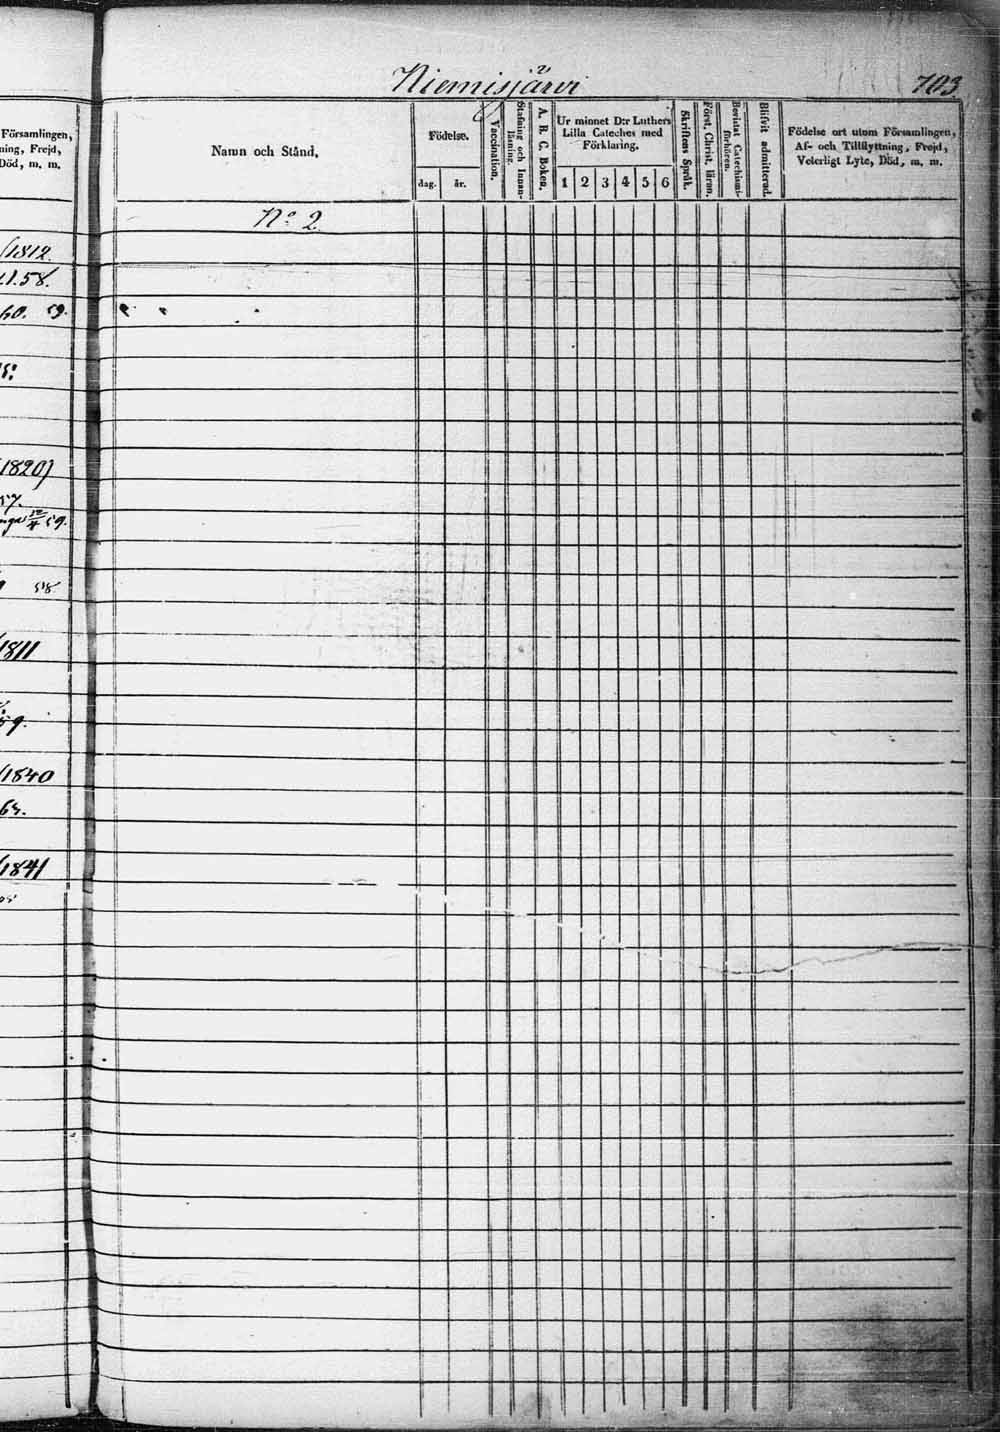 Niemisjärvi
703
Församlingen,
ning, Frejd,
Död, m. m.
Namn och Stånd.
Födelse.
dag.
år.
Vaccination.
Stafning och Innanläsning.
A. B. C. Boken.
Ur minnet D:r Luthers
Lilla Cateches med
Förklaring.
1 2 3 4 5 6
Skriftens Språk.
Först. Christ. läran.
Bevistat Catechismi-
förhören.
Blifvit admitterad.
Födelse ort utom Församlingen,
Af- och Tillflyttning, Frejd,
Veterligt Lyte, Död, m. m.
No 2
/1812
1.58.
60. 59.
1820)
57.
59.
58
/1811
59.
/1840
63.
/1841